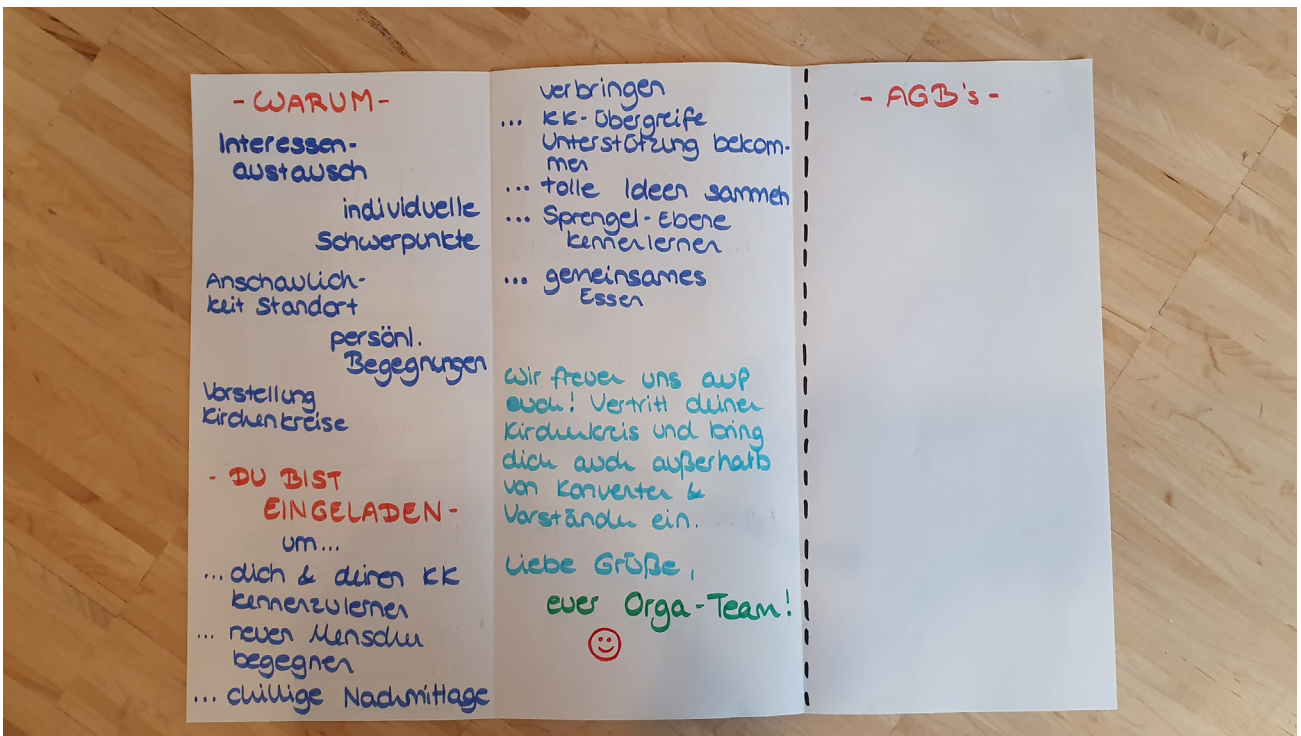 - WARUM -
Interessen-
austausch
individuelle
Schwerpunkte
Anschaulich-
keit Standort
persönl.
Begegnungen
Vorstellung
Kirchenkreise
- DU BIST
EINGELADEN -
um...
... dich & deinen KK
kennenzulernen
... neuen Menschen
begegnen
... chillige Nachmittage
verbringen
... KK-Übergreife
Unterstützung bekom-
men
... tolle Ideen sammeln
... Sprengel-Ebene
kennenlernen
... gemeinsames
Essen
Wir freuen uns auf
euch! Vertritt deinen
Kirchenkreis und bring
dich auch außerhalb
von Konventen &
Vorständen ein.
Liebe Grüße,
euer Orga-Team!
- AGB's -